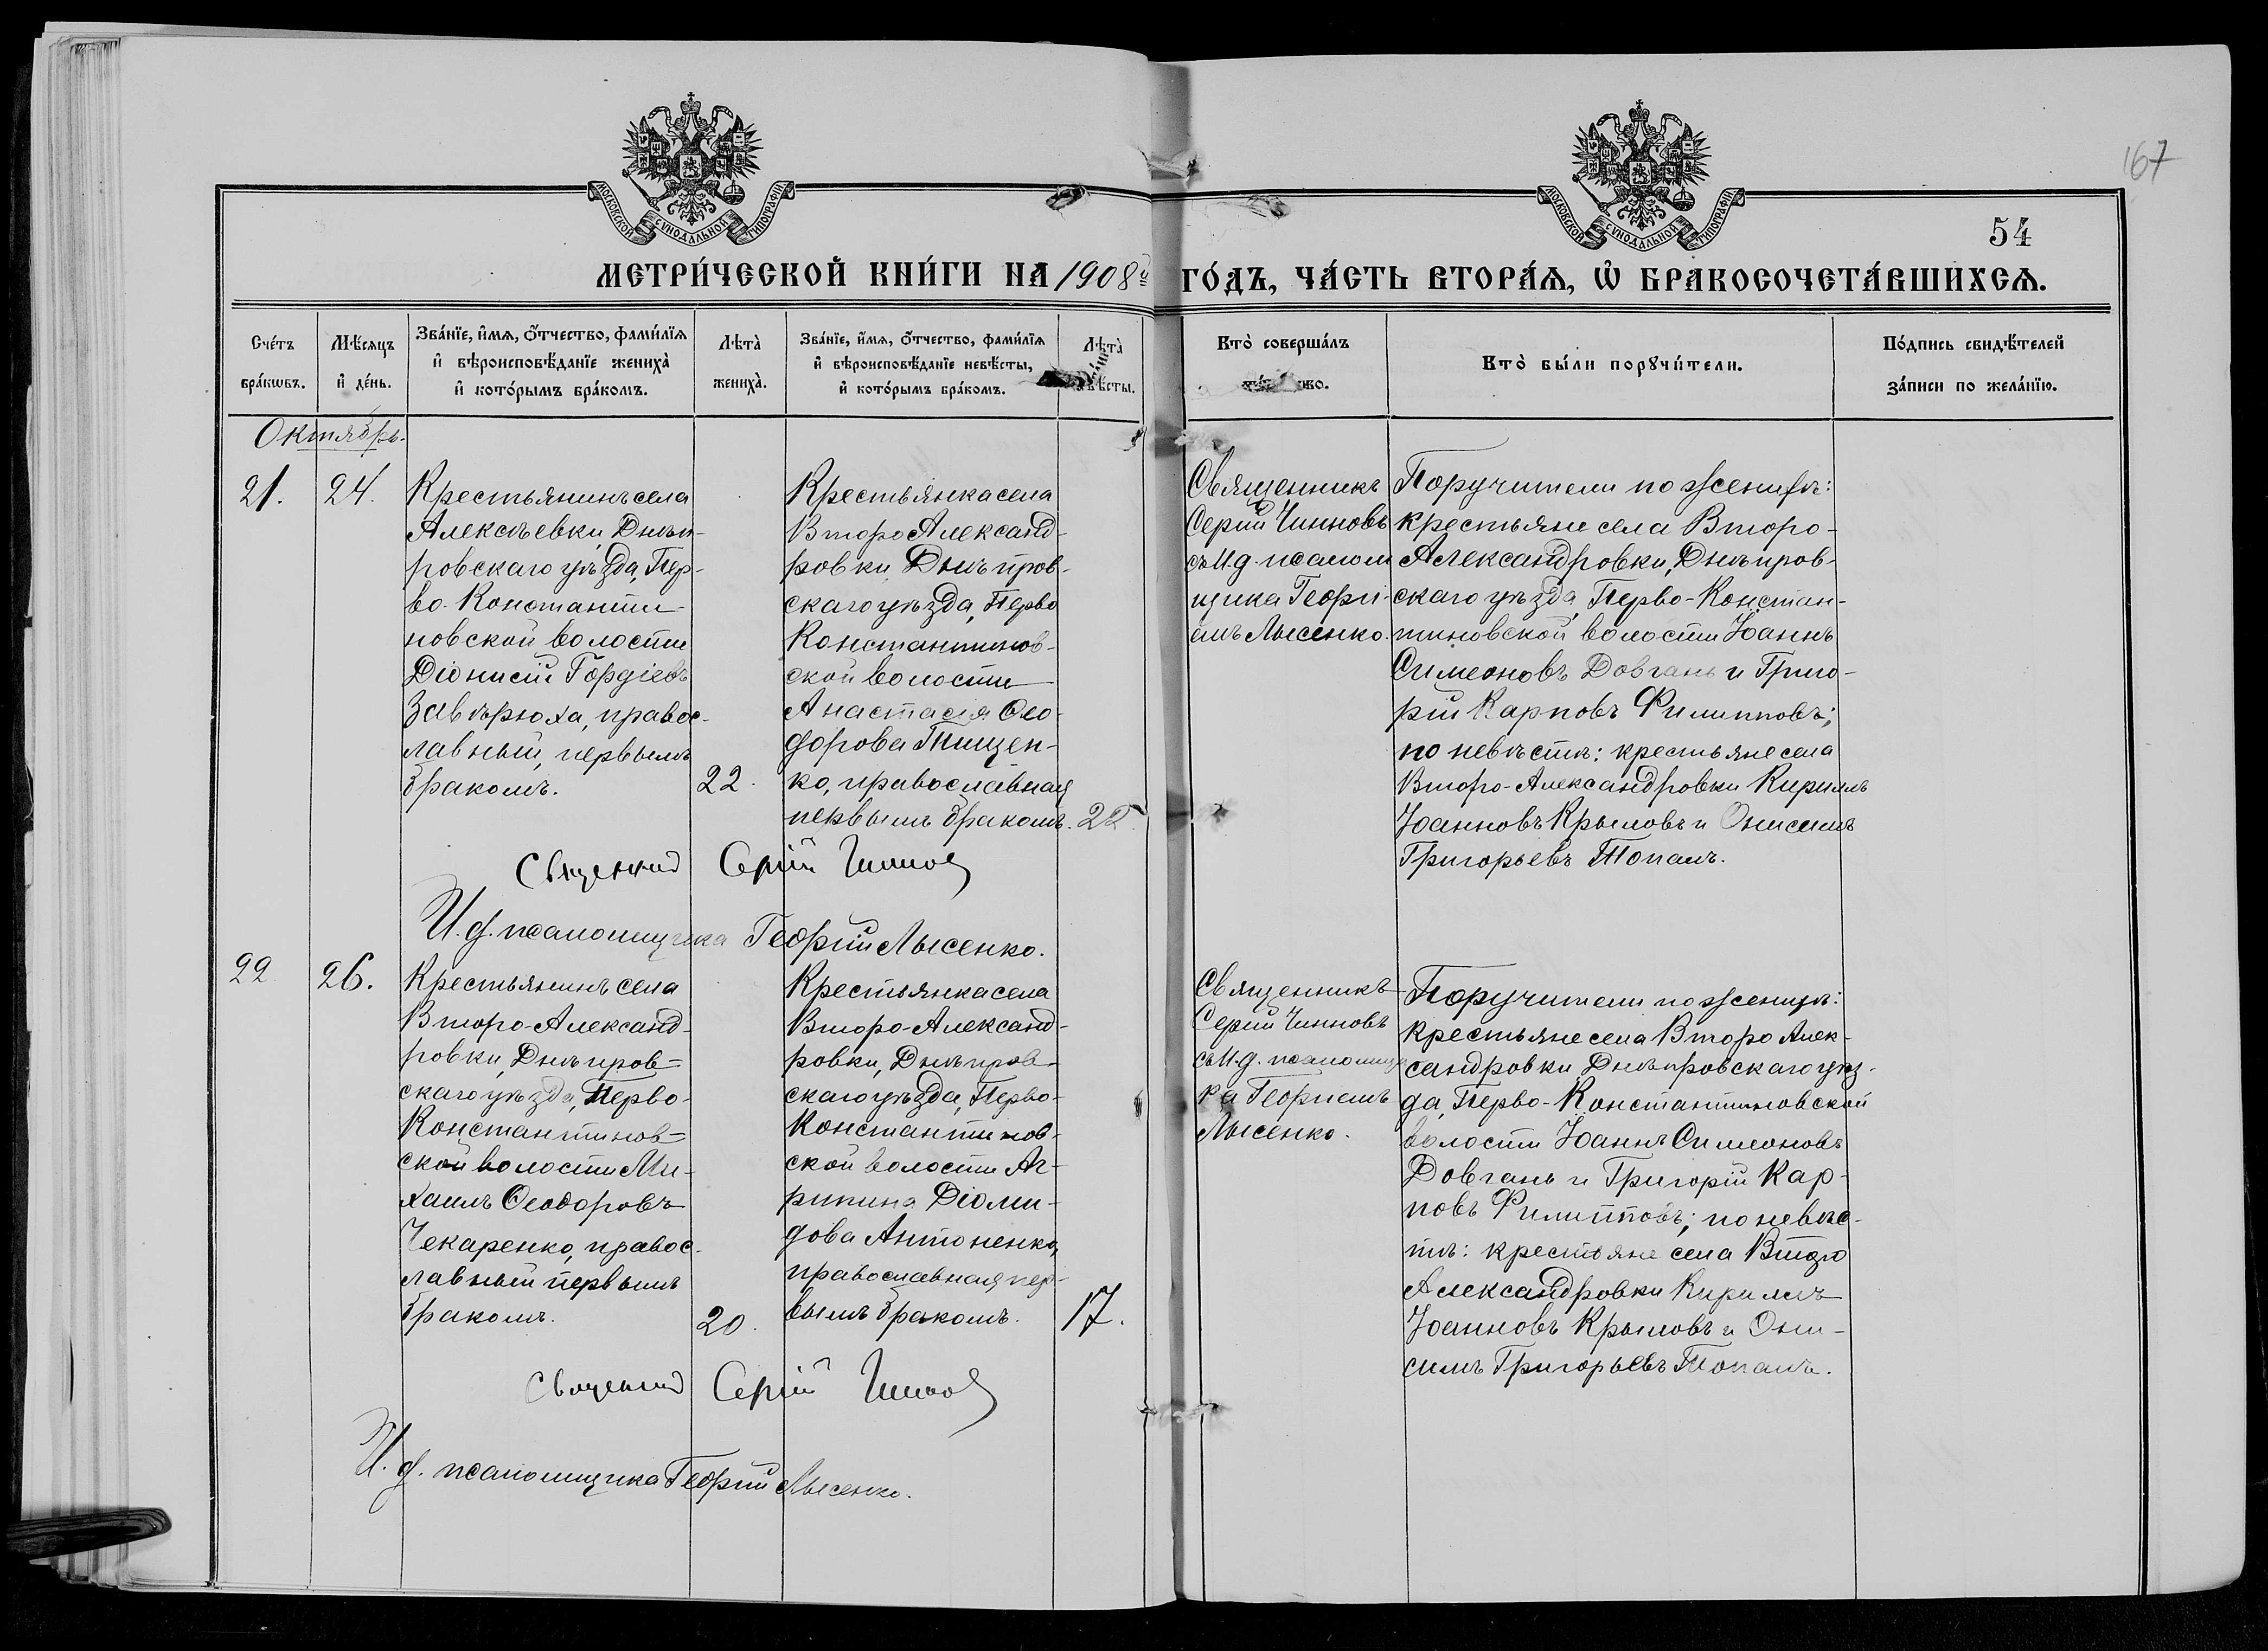 167
54
МОСКОВСКОЙ СѴНОДАЛЬНОЙ ТИПОГРАФІИ
МОСКОВСКОЙ СѴНОДАЛЬНОЙ ТИПОГРАФІИ
МЕТРИ́ЧЕСКОЙ КНИ́ГИ НА 1908й ГО́ДЪ, ЧА́СТЬ ВТОРА́Ѧ, Ѡ҆ БРАКОСОЧЕТА́ВШИХСѦ.
Сче́тъ бра́кѡвъ.
Мѣ́сяцъ и҆ де́нь.
Зва́нїе, и҆́мѧ, ѻ҆́тчество, фами́лїѧ и҆ вѣроисповѣ́данїе жениха̀ и҆ кото́рымъ бра́комъ.
Лѣта̀ жениха̀.
Зва́нїе, и҆́мѧ, ѻ҆́тчество, фами́лїѧ и҆ вѣроисповѣ́данїе невѣ́сты, и҆ кото́рымъ бра́комъ.
Лѣта̀
Кто̀ соверша́лъ
Кто̀ бы́ли порꙋчи́тели.
По́дпись свидѣ́телей за́писи по жела́нїю.
Октябрь.
21.
24.
Крестьянинъ села
Алексѣевки, Днѣп-
ровскаго уѣзда, Пер-
во-Константи-
новской волости
Діонисій Гордіевъ
Завѣрюха, правос-
лавный, первымъ
бракомъ.
22.
Крестьянка села
Второ Александ-
ровки, Днѣпров-
скаго уѣзда, Перво
Константинов-
ской волости
Анастасія Ѳео-
дорова Тищен-
ко, православная
первымъ бракомъ.
22.
Священникъ
Сергій Чинновъ
съ И.д. псалом
щика Георгі-
емъ Лысенко.
Поручители по женихѣ:
крестьяне села Второ-
Александровки, Днѣпров-
скаго уѣзда, Перво-Констан-
тиновской волости Іоаннъ
Симеоновъ Довгань и Григо-
рій Карповъ Филипповъ;
по невѣстѣ: крестьяне села
Второ-Александровки Кириллъ
Іоанновъ Крыловъ и Онисимъ
Григорьевъ Топалъ.
Священник Сергій Чиннов
И.д. псаломщика Георгій Лысенко.
22
26.
Крестьянинъ села
Второ-Александ-
ровки, Днѣпров-
скаго уѣзда, Перво-
Константинов-
ской волости Ми-
хаилъ Ѳеодоровъ
Чекаренко, правос-
лавный первымъ
бракомъ.
20.
Крестьянка села
Второ-Александ-
ровки, Днѣпров-
скаго уѣзда, Перво-
Константинов-
ской волости Аг-
рипина Діоми-
дова Антоненко,
православная, пер-
вымъ бракомъ.
17.
Священникъ
Сергій Чинновъ
съ И.д. псаломщи
ка Георгіемъ
Лысенко.
Поручители по женихѣ:
крестьяне села Второ Алек-
сандровки Днѣпровскаго уѣз-
да, Перво-Константиновской
волости Іоаннъ Симеоновъ
Довгань и Григорій Кар-
повъ Филипповъ; по невѣс-
тѣ: крестьяне села Второ
Александровки Кириллъ
Іоанновъ Крыловъ и Они-
симъ Григорьевъ Топалъ.
Священник Сергій Чиннов
И.д. псаломщика Георгій Лысенко.